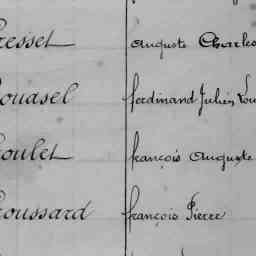 resset Auguste Charles
ouasel ferdinand Julien Lou
oulet françois Auguste
roussard françois Pierre